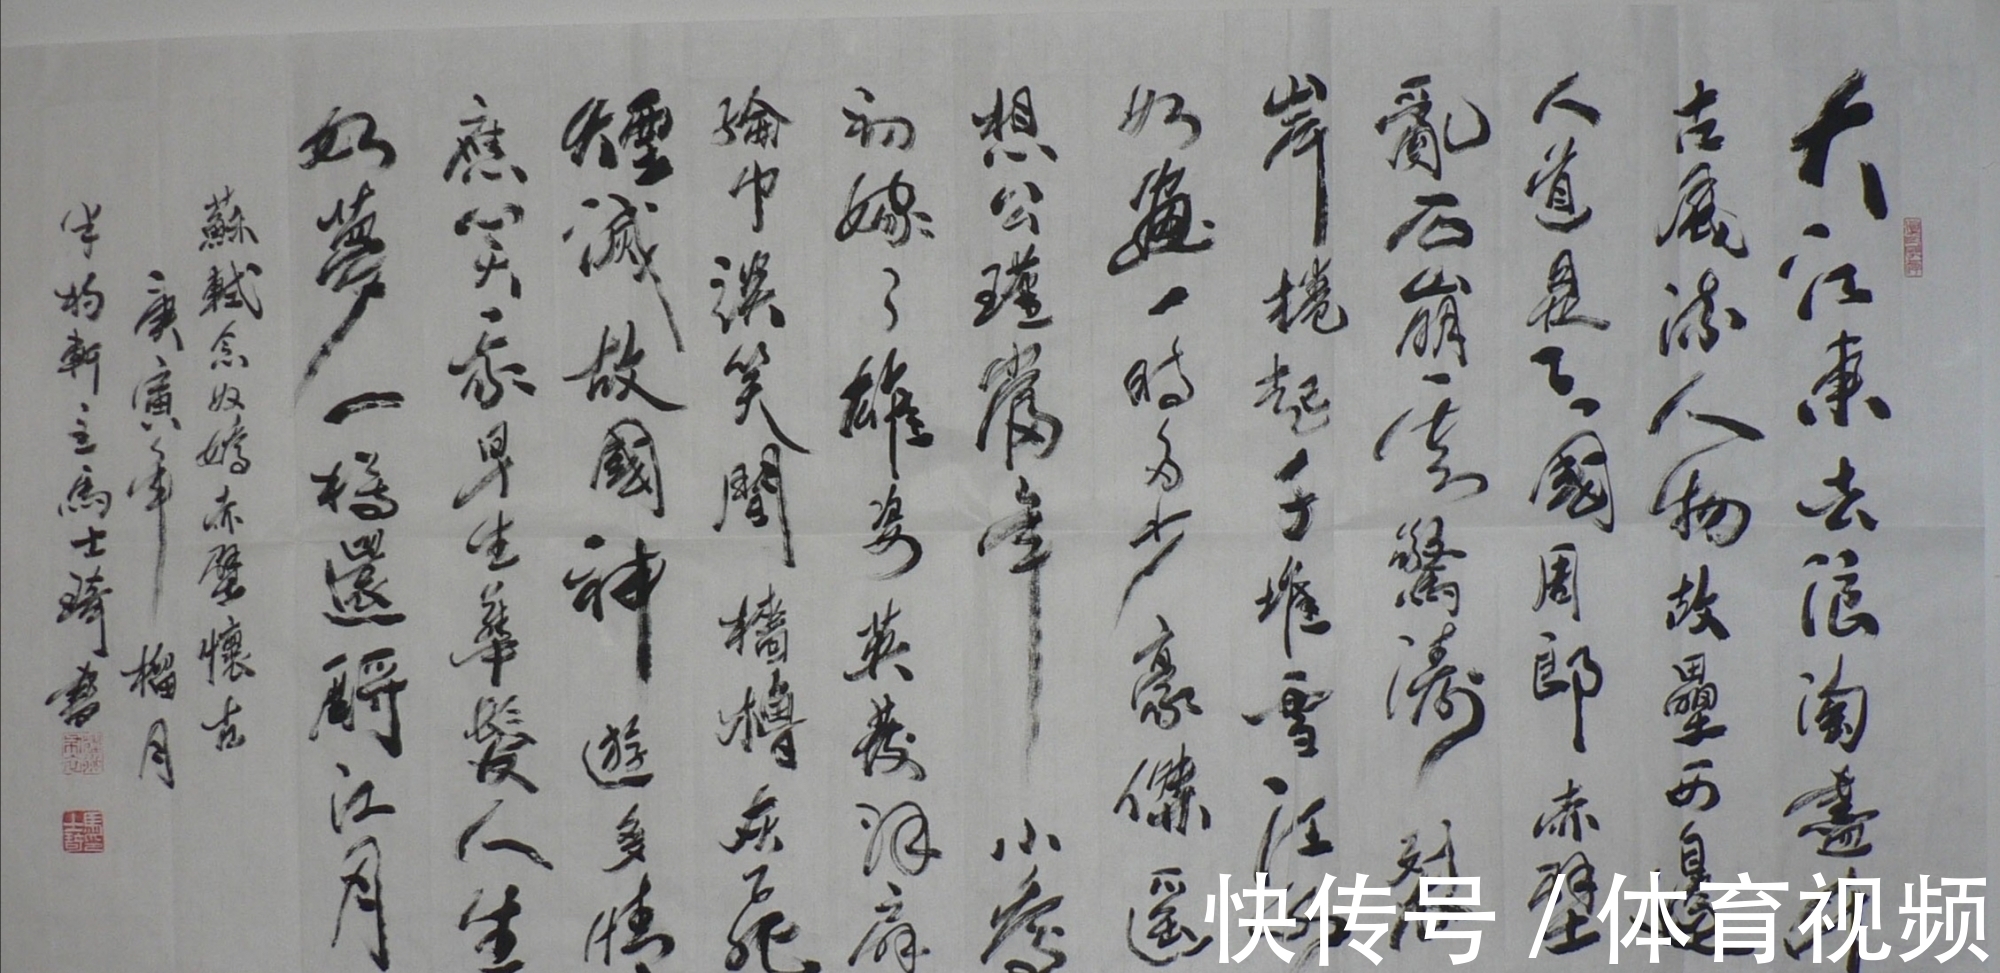 大江東去浪淘盡千
古風流人物故壘西邊
人道是三國周郎赤壁
亂石崩雲驚濤裂
岸捲起千堆雪江
如畫一時多少豪傑遥
想公瑾當年小喬
初嫁了雄姿英發羽扇
綸巾談笑間檣櫓灰飛
煙滅故國神遊多情
應笑我早生華髮人生
如夢一樽還酹江月
蘇軾念奴嬌赤壁懷古
庚寅年榴月
軒主馬士琦書
快传号 / 体育视频